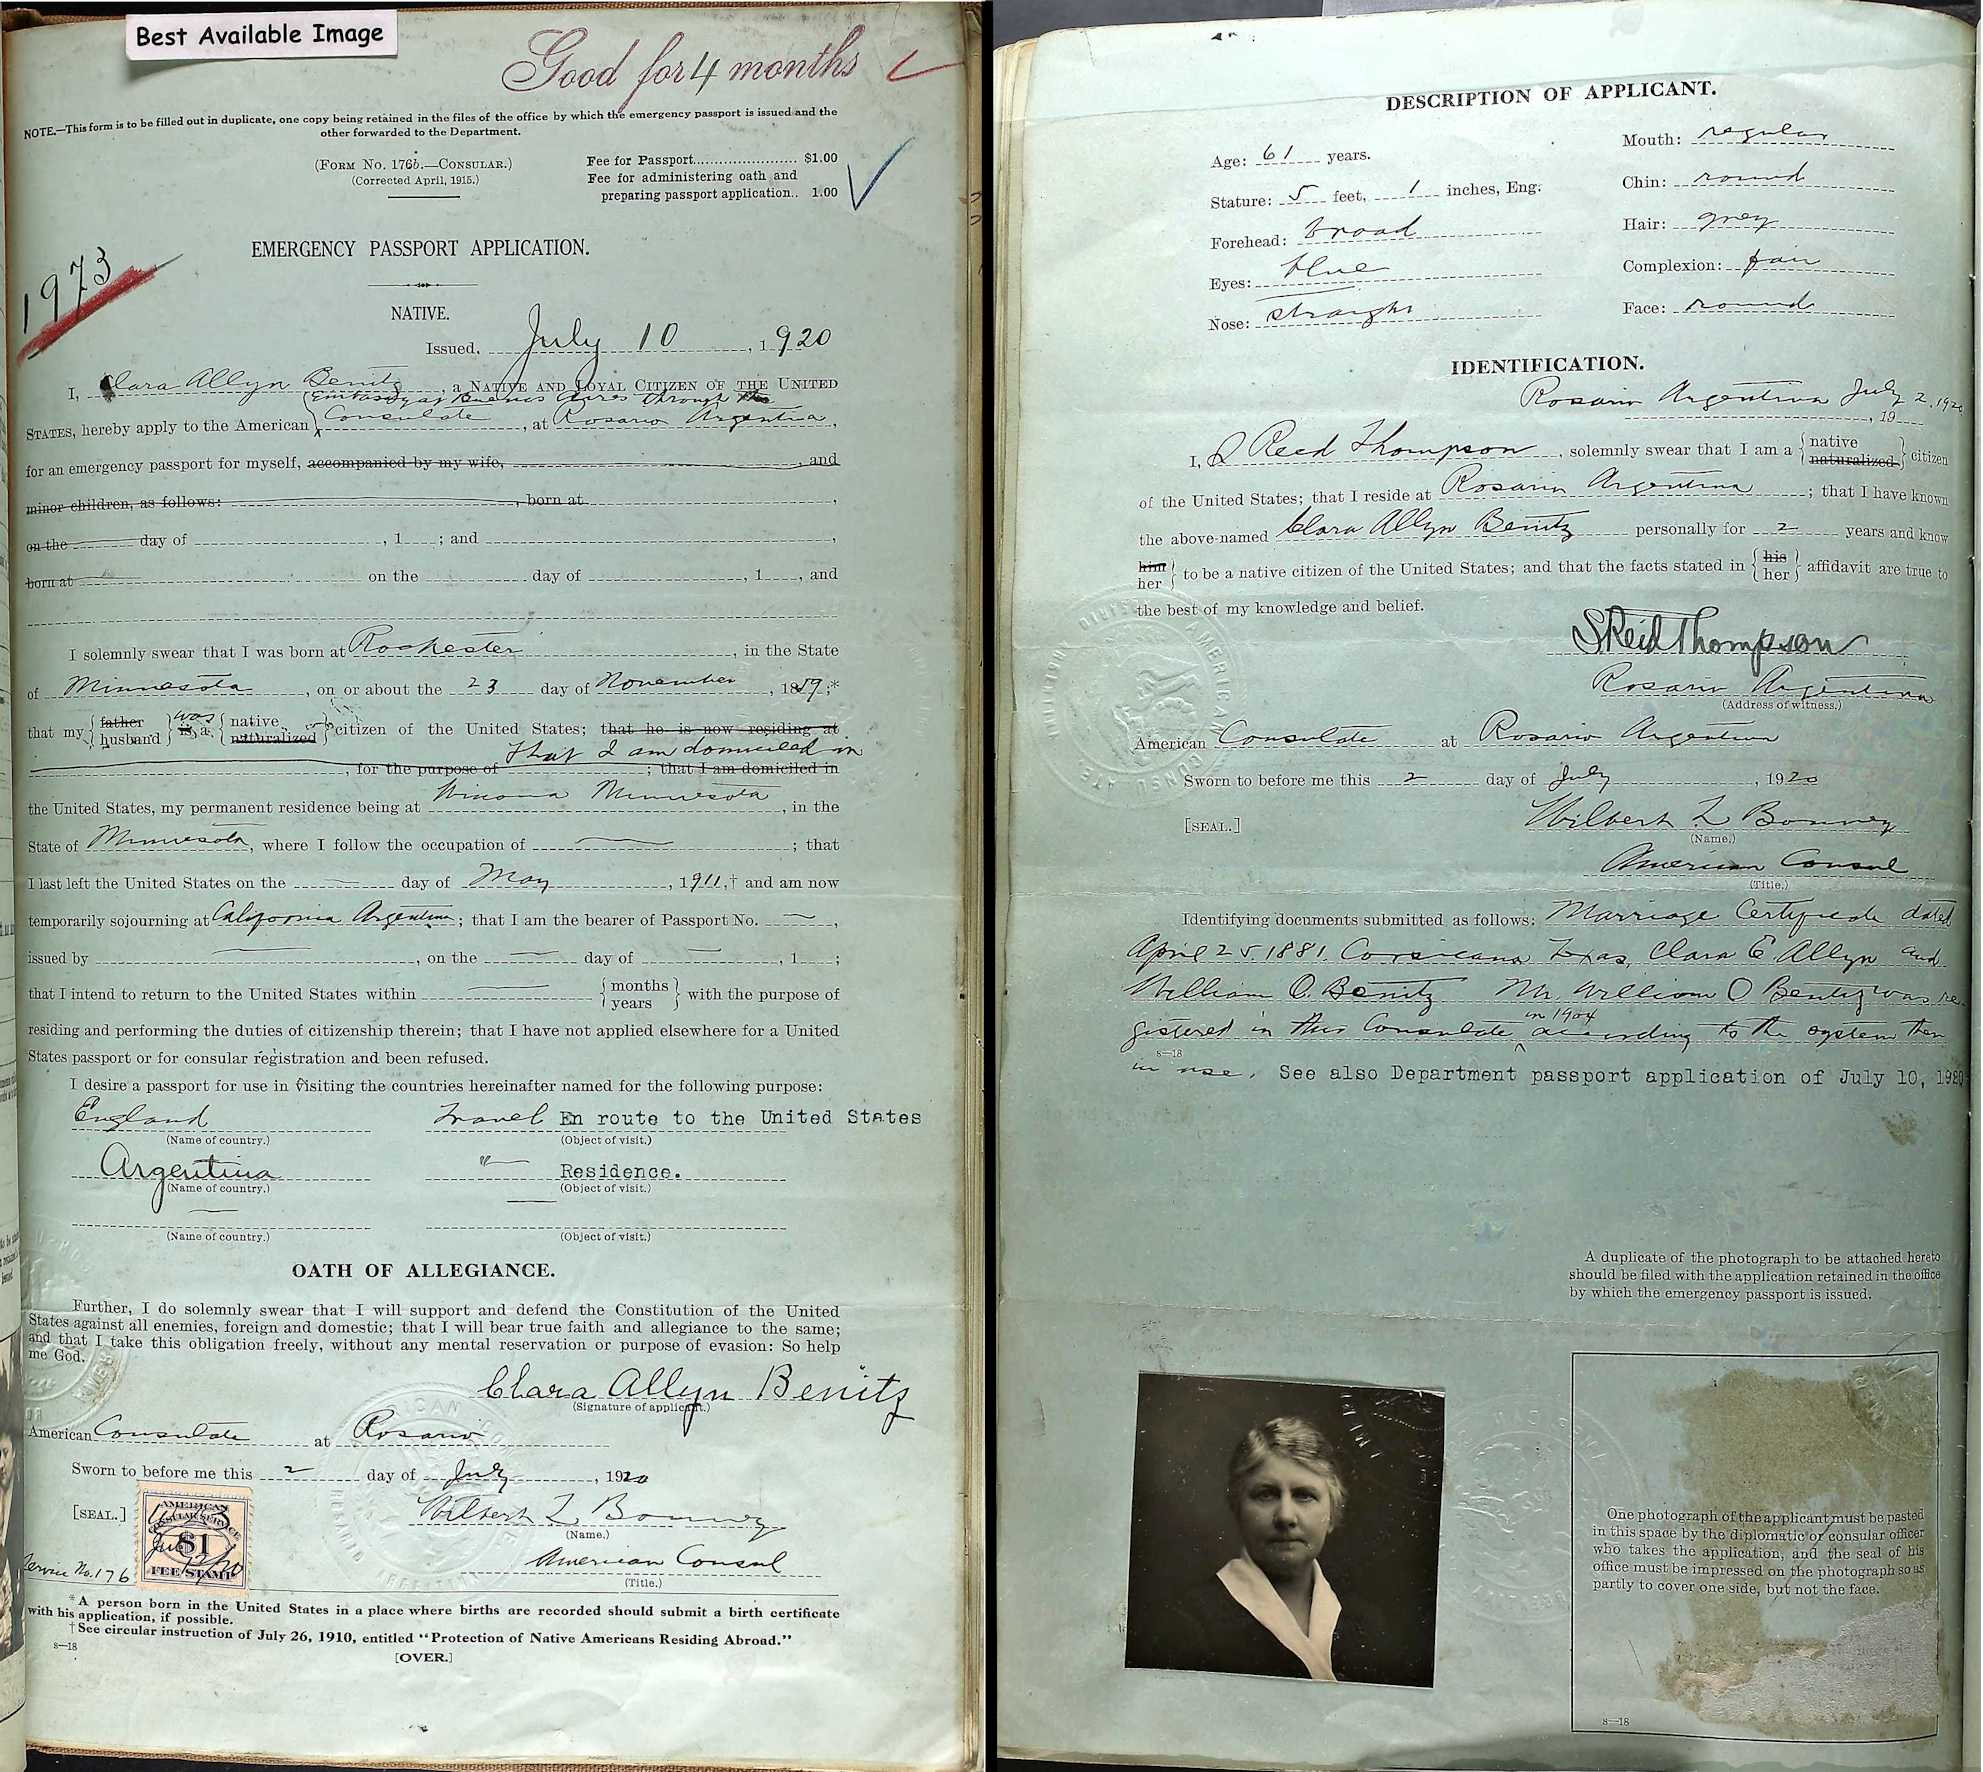 Best Available Image
Good for 4 months
NOTE.—This form is to be filled out in duplicate, one copy being retained in the files of the office by which the emergency passport is issued and the
other forwarded to the Department.
(FORM NO. 176b.—CONSULAR.)
(Corrected April, 1915.)
Fee for Passport....................... $1.00
Fee for administering oath and
preparing passport application.. 1.00
1973
EMERGENCY PASSPORT APPLICATION.
NATIVE.
Issued, July 10, 1920
I, Clara Allyn Benitz, a NATIVE AND LOYAL CITIZEN OF THE UNITED
Embassy at Buenos Aires through the
STATES, hereby apply to the American Consulate, at Rosario Argentina,
for an emergency passport for myself, accompanied by my wife, , and
minor children, as follows: , born at ,
on the day of , 1 ; and ,
born at on the day of , 1 , and
I solemnly swear that I was born at Rochester, in the State
of Minnesota, on or about the 23 day of November, 1859;*
that my { father husband } was is a { native naturalized } citizen of the United States; that he is now residing at
that I am domiciled in
, for the purpose of ; that I am domiciled in
the United States, my permanent residence being at Winona Minnesota, in the
State of Minnesota, where I follow the occupation of — ; that
I last left the United States on the — day of May, 1911,† and am now
temporarily sojourning at California Argentina; that I am the bearer of Passport No. —,
issued by —, on the — day of —, 1 ;
that I intend to return to the United States within — { months years } with the purpose of
residing and performing the duties of citizenship therein; that I have not applied elsewhere for a United
States passport or for consular registration and been refused.
I desire a passport for use in visiting the countries hereinafter named for the following purpose:
England travel En route to the United States
(Name of country.) (Object of visit.)
Argentina " Residence.
(Name of country.) (Object of visit.)
(Name of country.) (Object of visit.)
OATH OF ALLEGIANCE.
Further, I do solemnly swear that I will support and defend the Constitution of the United
States against all enemies, foreign and domestic; that I will bear true faith and allegiance to the same;
and that I take this obligation freely, without any mental reservation or purpose of evasion: So help
me God.
Clara Allyn Benitz
(Signature of applicant.)
American Consulate at Rosario
Sworn to before me this 2 day of July, 1920
[SEAL.]
Wilbert L Bonney
(Name.)
American Consul
(Title.)
AMERICAN
CONSULAR SERVICE
$1
FEE STAMP
Service No. 176
* A person born in the United States in a place where births are recorded should submit a birth certificate
with his application, if possible.
† See circular instruction of July 26, 1910, entitled "Protection of Native Americans Residing Abroad."
s—18
[OVER.]
DESCRIPTION OF APPLICANT.
Age: 61 years.
Stature: 5 feet, 1 inches, Eng.
Forehead: broad
Eyes: blue
Nose: straight
Mouth: regular
Chin: round
Hair: grey
Complexion: fair
Face: round
IDENTIFICATION.
Rosario Argentina July 2, 1920
, 19
I, S Reed Thompson, solemnly swear that I am a { native naturalized } citizen
of the United States; that I reside at Rosario Argentina; that I have known
the above-named Clara Allyn Benitz personally for 2 years and know
{ him her } to be a native citizen of the United States; and that the facts stated in { his her } affidavit are true to
the best of my knowledge and belief.
S Reid Thompson
Rosario Argentina
(Address of witness.)
American Consulate at Rosario Argentina
Sworn to before me this 2 day of July, 1920
[SEAL.]
Wilbert L Bonney
(Name.)
American Consul
(Title.)
Identifying documents submitted as follows: Marriage Certificate dated
April 25, 1881. Corsicana Texas, Clara E. Allyn and
William O. Benitz Mr. William O Benitz was re-
gistered in this Consulate in 1904 according to the system then
s—18
in use. See also Department passport application of July 10, 1920
A duplicate of the photograph to be attached hereto
should be filed with the application retained in the office
by which the emergency passport is issued.
One photograph of the applicant must be pasted
in this space by the diplomatic or consular officer
who takes the application, and the seal of his
office must be impressed on the photograph so as
partly to cover one side, but not the face.
s—18